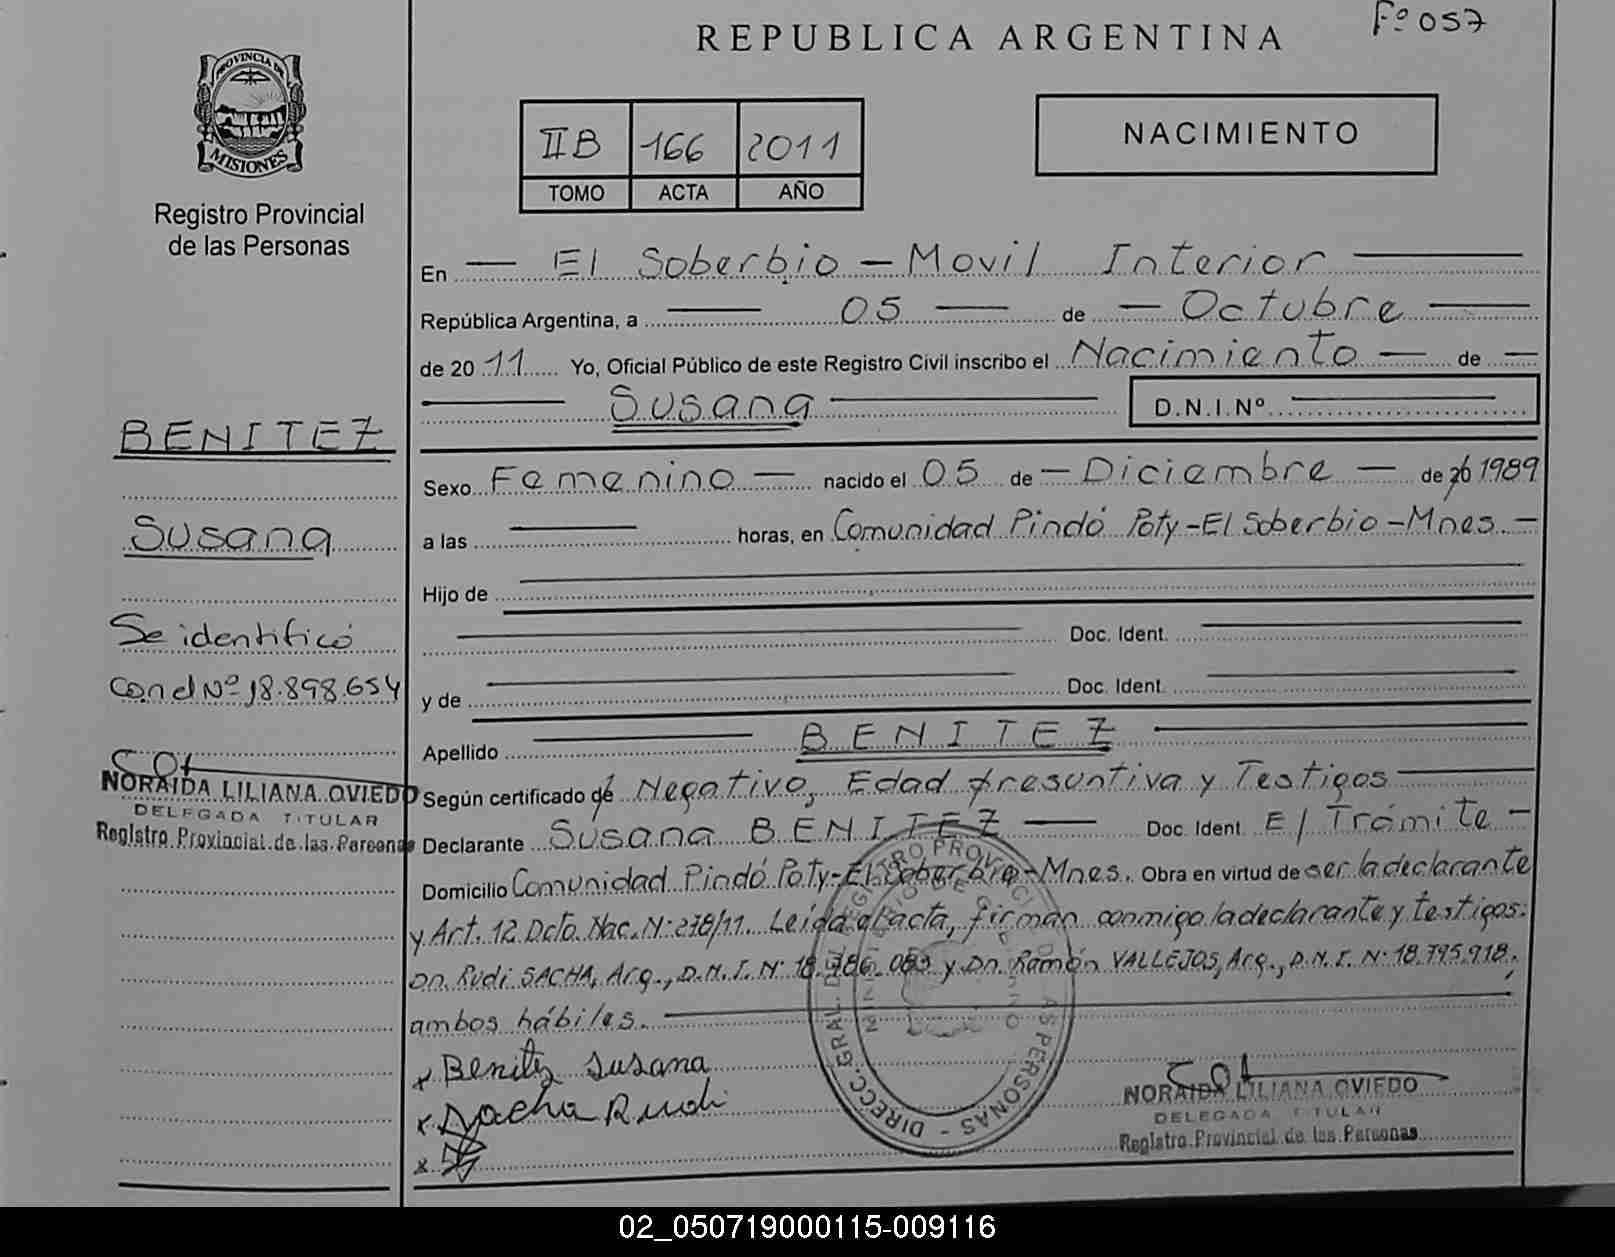 REPUBLICA ARGENTINA
Fº 057
PROVINCIA DE
MISIONES
Registro Provincial
de las Personas
II B 166 2011
TOMO ACTA AÑO
NACIMIENTO
BENITEZ
Susana
Se identificó
con el Nº 18.898.654
NORAIDA LILIANA OVIEDO
DELEGADA TITULAR
Registro Provincial de las Personas
En — El Soberbio — Movil Interior —
República Argentina, a — 05 — de — Octubre —
de 2011 Yo, Oficial Público de este Registro Civil inscribo el Nacimiento — de —
— Susana — D.N.I.Nº —
Sexo Femenino — nacido el 05 de — Diciembre — de 20 1989
a las — horas, en Comunidad Pindó Poty - El Soberbio - Mnes. —
Hijo de —
— Doc. Ident. —
y de — Doc. Ident. —
Apellido — BENITEZ —
Según certificado de Negativo, Edad presuntiva y Testigos —
Declarante Susana BENITEZ — Doc. Ident. E/ Trámite —
Domicilio Comunidad Pindó Poty - El Soberbio - Mnes. Obra en virtud de ser la declarante
y Art. 12 Dcto. Nac. Nº 278/11. Leída el acta, firman conmigo la declarante y testigos:
Dn. Rudi SACHA, Arg., D.N.I. Nº 18.786.083 y Dn. Ramón VALLEJOS, Arg., D.N.I. Nº 18.795.918,
ambos hábiles. —
x Benitez Susana
x Sacha Rudi
x
DIRECC. GRAL. DEL REGISTRO PROVINCIAL DE LAS PERSONAS -
NORAIDA LILIANA OVIEDO
DELEGADA TITULAR
Registro Provincial de las Personas
02_050719000115-009116